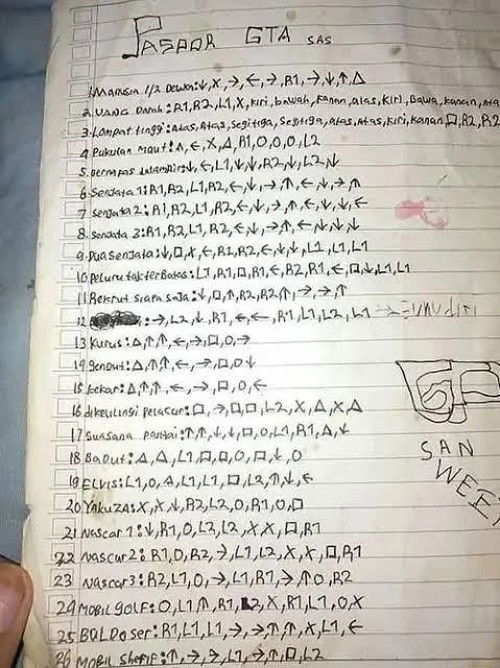 PASPOR GTA SAS
1. Manusia 1/2 Dewa: ↓, X, →, ←, →, R1, →, ↓, ↑, Δ
2. UANG Darah: R1, R2, L1, X, Kiri, bawah, Kanan, atas, Kiri, Bawa, Kanan, Ata
3. Lompat tinggi: Atas, Atas, Segitiga, Segitiga, Atas, Atas, Kiri, Kanan, □, R2, R2
4 Pukulan Maut: Δ, ←, X, Δ, R1, O, O, O, L2
5. bernapas dalam air: ↓, ←, L1, ↓, ↓, R2, ↓, L2, ↓
6. Senjata 1: R1, R2, L1, R2, ←, ↓, →, ↑, ←, ↓, →, ↑
7 Senjata 2: R1, R2, L1, R2, ←, ↓, →, ↑, ←, ↓, ↓, ←
8. Senjata 3: R1, R2, L1, R2, ←, ↓, →, ↑, ←, ↓, ↓, ↓
9. Dua Senjata: ↓, □, X, ←, R1, R2, ←, ↓, ↓, L1, L1, L1
10. Peluru tak terBatas: L1, R1, □, R1, ←, R2, R1, ←, □, ↓, L1, L1
11 Rekrut siapa saja: ↓, □, ↑, R2, R2, ↑, →, →, ↑
12 : →, L2, ↓, R1, ←, ←, R1, L1, L2, L1
13 Kurus: Δ, ↑, ↑, ←, →, □, O, →
14 Gendut: Δ, ↑, ↑, ←, →, □, O ↓
15 kekar: Δ, ↑, ↑, ←, →, □, O, ←
16 dikelilingi pelacur: □, →, □, □, L2, X, Δ, X, Δ
17 Suasana pantai: ↑, ↑, ↓, ↓, □, O, L1, R1, Δ, ↓
18 BaDut: Δ, Δ, L1, □, □, O, □, ↓, O
19 ELVIS: L1, O, Δ, L1, L1, □, L2, ↑, ↓, ←
20 Yakuza: X, X, ↓, R2, L2, O, R1, O, □
21 Nascar 1: ↓, R1, O, L2, L2, X, X, □, R1
22 Nascar 2: R1, O, R2, →, L1, L2, X, X, □, R1
23 Nascar 3: R2, L1, O, →, L1, R1, →, ↑ O, R2
24 MOBIL golf: O, L1, ↑, R1, L2, X, R1, L1, O, X
25 BOLDoser: R1, L1, L1, →, →, ↑, ↑, X, L1, ←
26 MOBIL Sherif: ↑, →, →, L1, →, ↑, □, L2
SAN
WEE